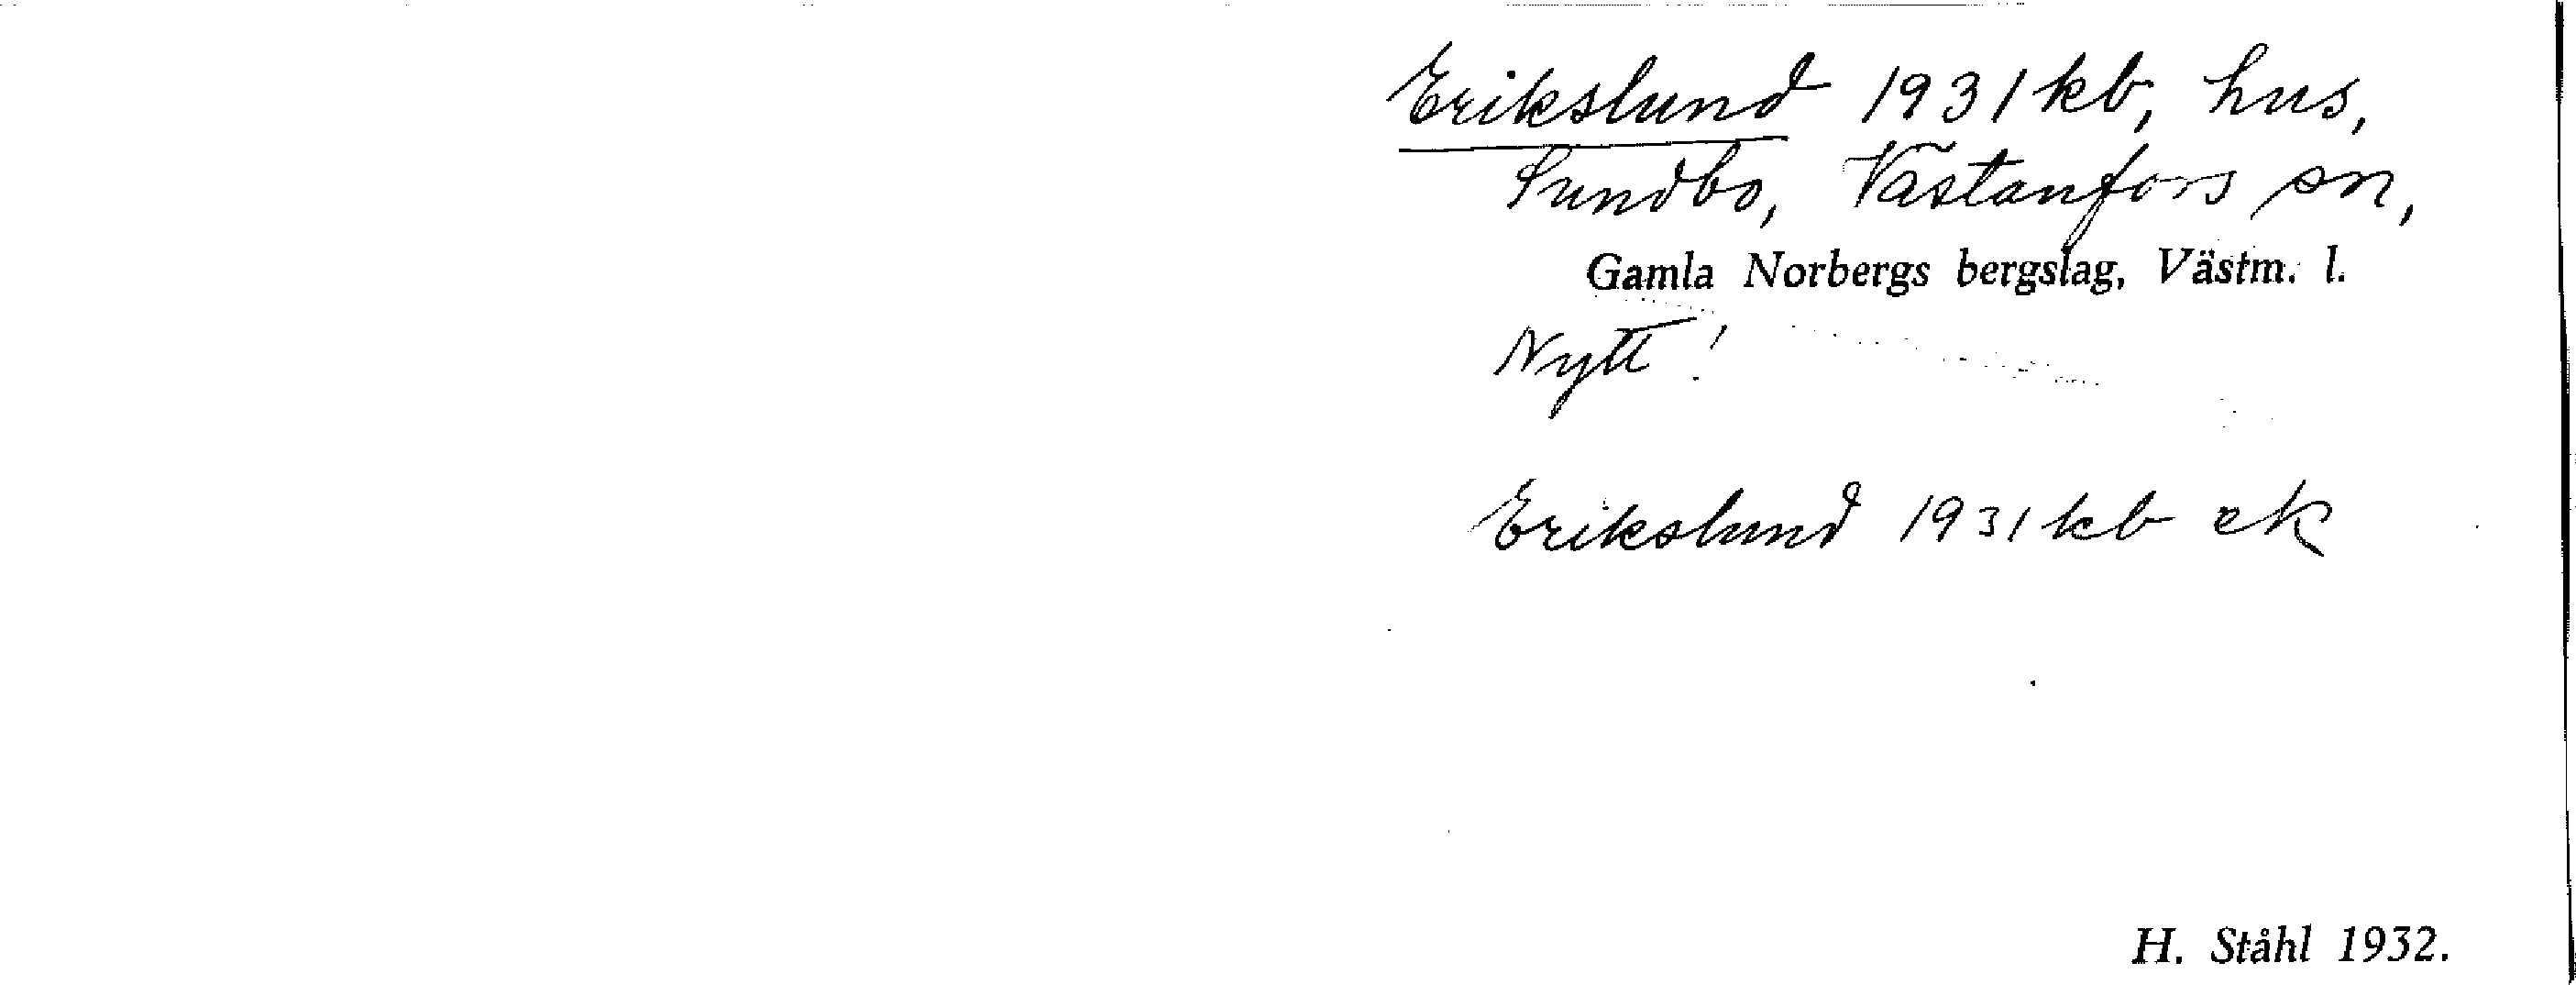 Erikslund 1931 kb, hus,
Sundbo, Västanfors sn,
Gamla Norbergs bergslag, Västm. l.
Nytt!
Erikslund 1931 kb ek
H. Ståhl 1932.